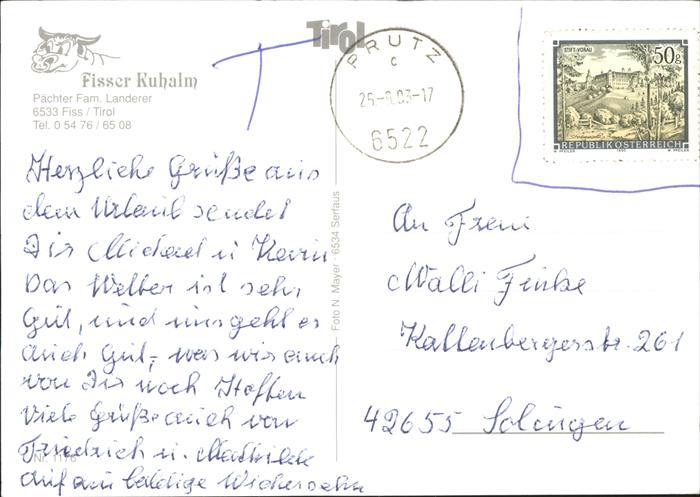 Tirol
Fisser Kuhalm
Pächter Fam. Landerer
6533 Fiss / Tirol
Tel. 0 54 76 / 65 08
T
PRUTZ
c
-17
6522
STIFT VORAU
50g
REPUBLIK ÖSTERREICH
1990
Herzliche Grüße aus
dem Urlaub sendet
Dir Michael u Kevin
Das Wetter ist sehr
Gut, und uns geht es
auch Gut, was wir auch
von Dir noch Hoffen
Viele Grüße auch von
Friedrich u. Mathilde
Auf ein baldige Wiedersehn
Nr. 1176
Foto N. Mayer 6534 Serfaus
An Frau
Walli Finke
Kattenbergerstr. 261
42655 Solingen